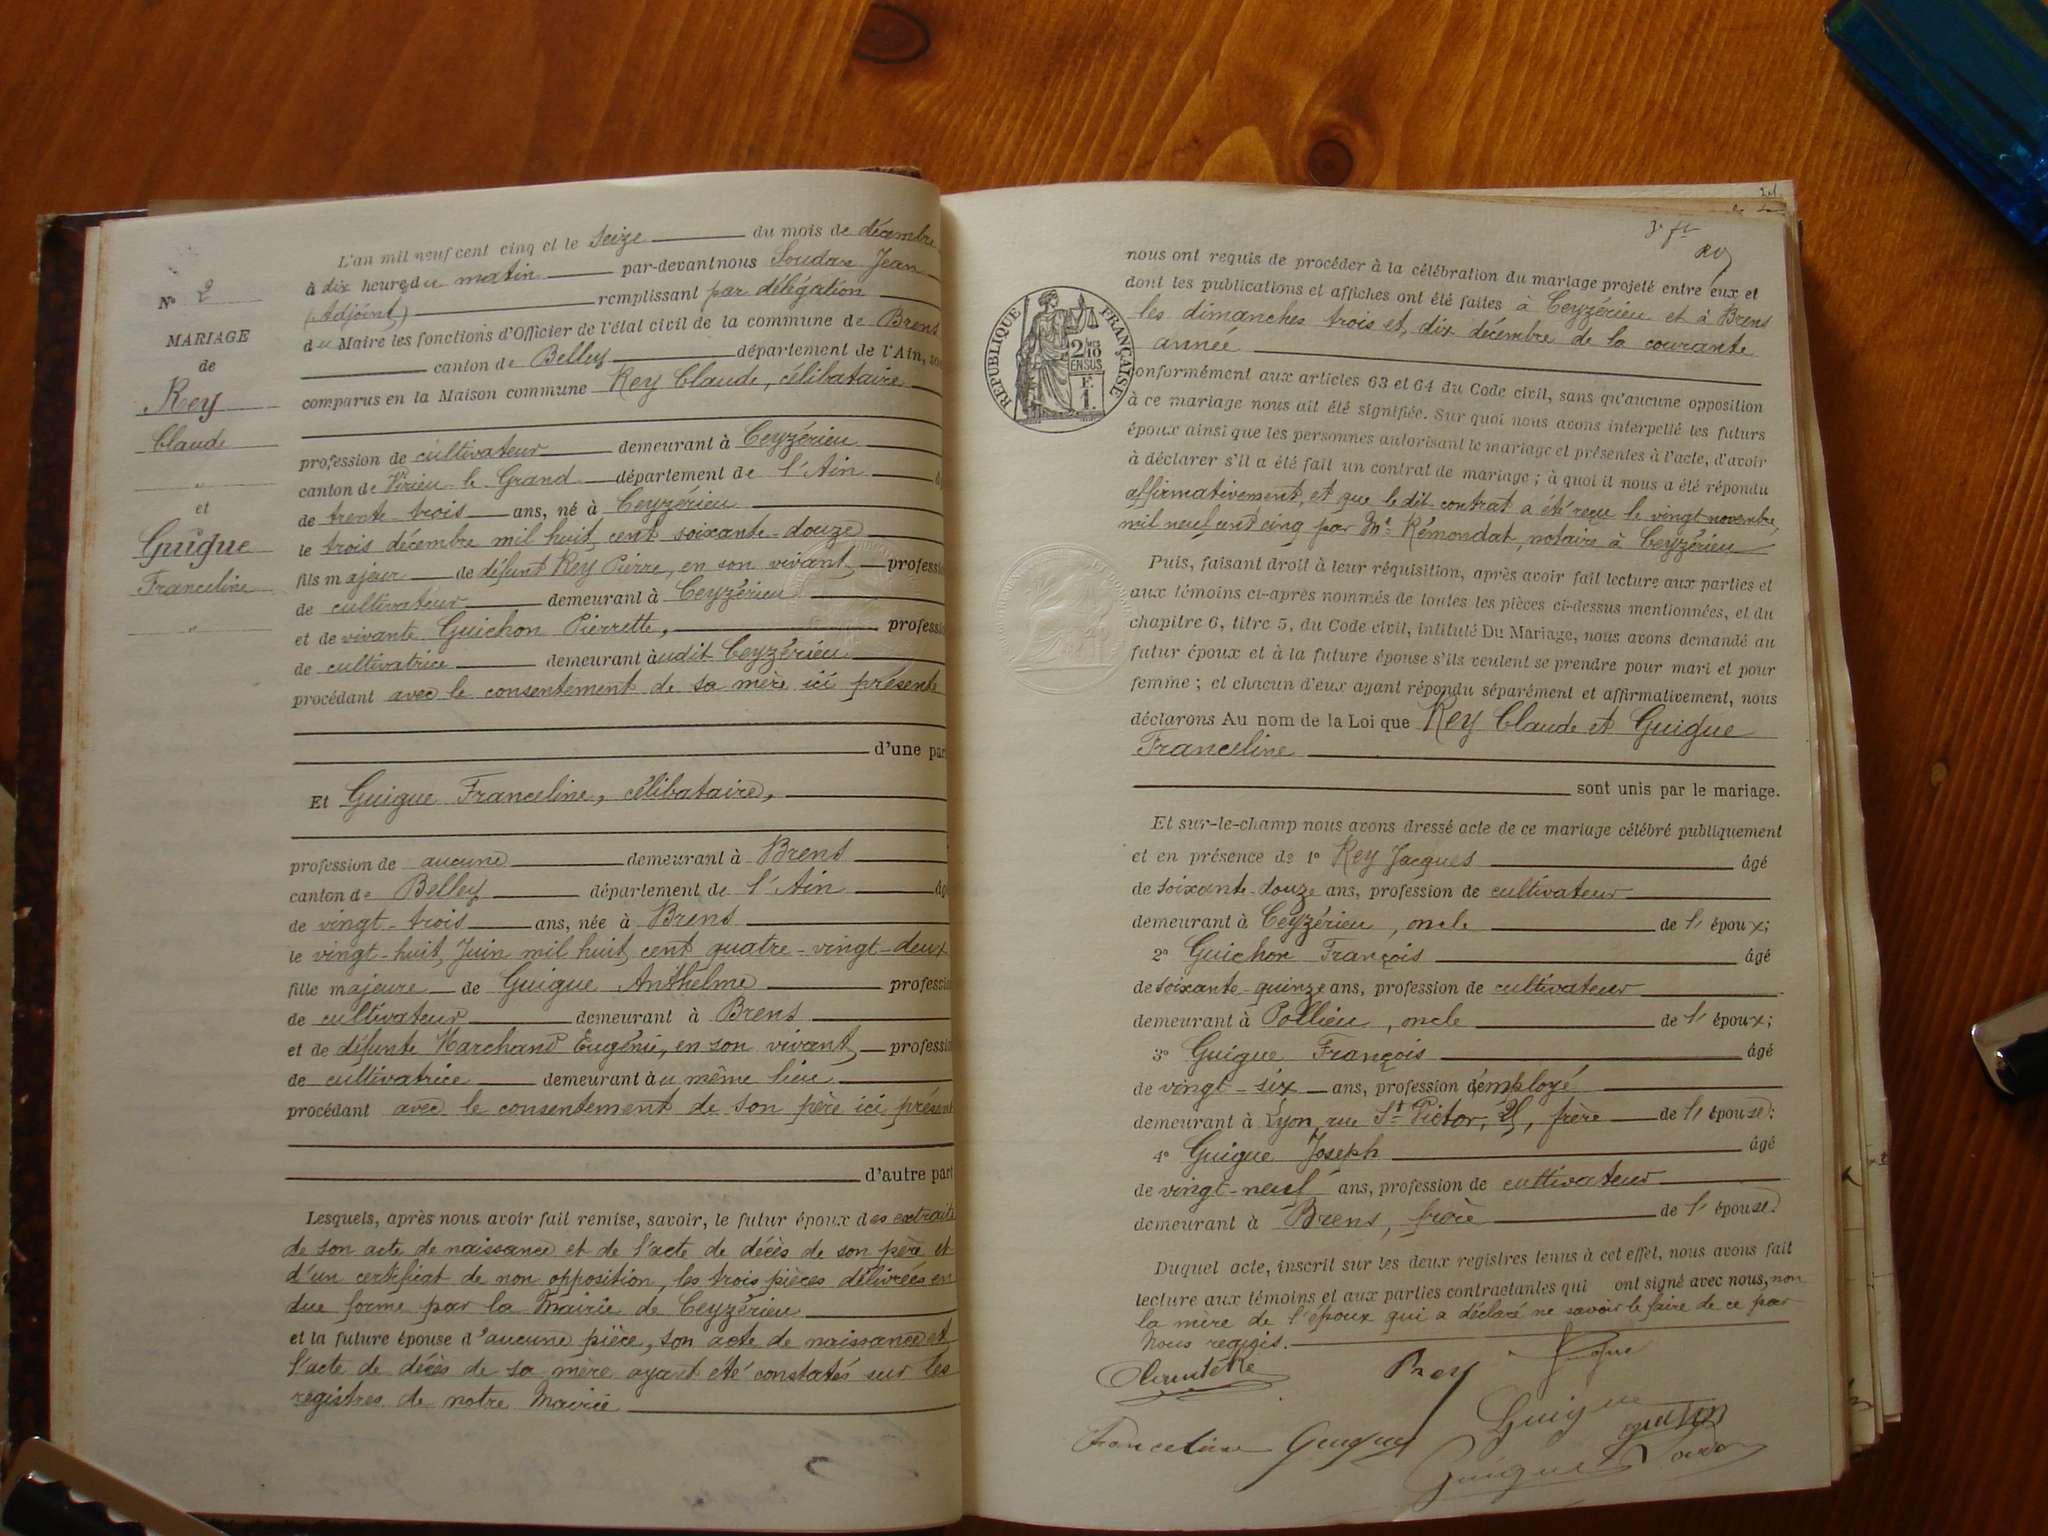 N° 2
MARIAGE
de
Rey
Claude
"
et
Guigue
Franceline
"
L'an mil neuf cent cinq et le seize du mois de décembre
à dix heures du matin par-devant nous Soudan Jean
(Adjoint) remplissant par délégation
du Maire les fonctions d'Officier de l'état civil de la commune de Brens
canton de Belley département de l'Ain, so
comparus en la Maison commune Rey Claude, célibataire
profession de cultivateur demeurant à Ceyzérieu
canton de Virieu-le-Grand département de l'Ain
de trente trois ans, né à Ceyzérieu
le trois décembre mil huit cent soixante-douze
fils majeur de défunt Rey Pierre, en son vivant professi
de cultivateur demeurant à Ceyzérieu
et de vivante Guichon Pierrette, professi
de cultivatrice demeurant audit Ceyzérieu
procédant avec le consentement de sa mère ici présente
d'une par
Et Guigue Franceline, célibataire,
profession de aucune demeurant à Brens
canton de Belley département de l'Ain âg
de vingt-trois ans, née à Brens
le vingt-huit Juin mil huit cent quatre-vingt-deux
fille majeure de Guigue Anthelme professi
de cultivateur demeurant à Brens
et de défunte Marchand Eugénie, en son vivant professi
de cultivatrice demeurant au même lieu
procédant avec le consentement de son père ici présent
d'autre part
Lesquels, après nous avoir fait remise, savoir, le futur époux des extraits
de son acte de naissance et de l'acte de décès de son père et
d'un certificat de non opposition, les trois pièces délivrées en
due forme par la Mairie de Ceyzérieu
et la future épouse d'aucune pièce, son acte de naissance et
l'acte de décès de sa mère ayant été constatés sur les
registres de notre Mairie
RÉPUBLIQUE FRANÇAISE
2/10
EN SUS
F.
1.
nous ont requis de procéder à la célébration du mariage projeté entre eux et
dont les publications et affiches ont été faites à Ceyzérieu et à Brens
les dimanches trois et dix décembre de la courante
année
conformément aux articles 63 et 64 du Code civil, sans qu'aucune opposition
à ce mariage nous ait été signifiée. Sur quoi nous avons interpellé les futurs
époux ainsi que les personnes autorisant le mariage et présentes à l'acte, d'avoir
à déclarer s'il a été fait un contrat de mariage ; à quoi il nous a été répondu
affirmativement, et que le dit contrat a été reçu le vingt novembre,
mil neuf cent cinq par Me Rémondat, notaire à Ceyzérieu
Puis, faisant droit à leur réquisition, après avoir fait lecture aux parties et
aux témoins ci-après nommés de toutes les pièces ci-dessus mentionnées, et du
chapitre 6, titre 5, du Code civil, intitulé Du Mariage, nous avons demandé au
futur époux et à la future épouse s'ils veulent se prendre pour mari et pour
femme ; et chacun d'eux ayant répondu séparément et affirmativement, nous
déclarons Au nom de la Loi que Rey Claude et Guigue
Franceline
sont unis par le mariage.
Et sur-le-champ nous avons dressé acte de ce mariage célébré publiquement
et en présence de 1° Rey Jacques âgé
de soixante-douze ans, profession de cultivateur
demeurant à Ceyzérieu, oncle de l'époux;
2° Guichon François âgé
de soixante-quinze ans, profession de cultivateur
demeurant à Pollieu, oncle de l'époux;
3° Guigue François âgé
de vingt-six ans, profession d'employé
demeurant à Lyon, rue St Victor, frère de l'épouse;
4° Guigue Joseph âgé
de vingt-neuf ans, profession de cultivateur
demeurant à Brens, frère de l'épouse.
Duquel acte, inscrit sur les deux registres tenus à cet effet, nous avons fait
lecture aux témoins et aux parties contractantes qui ont signé avec nous, non
la mère de l'époux qui a déclaré ne savoir le faire de ce par
Nous requis.
Rey
Guigue
Franceline Guigue
Guigue
Guigue Soudan